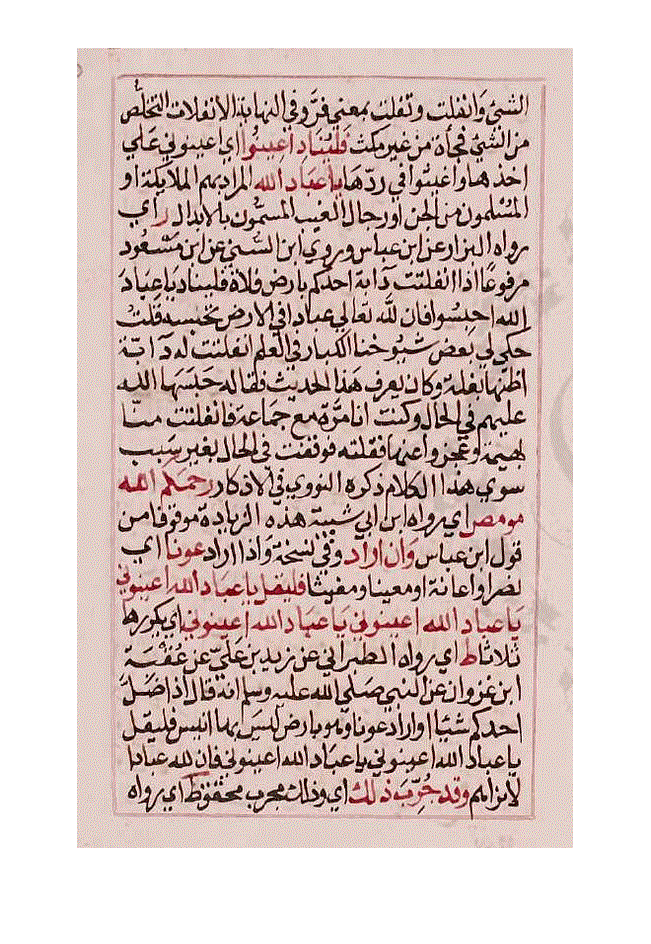 الشئ وانفلت وتفلت بمعني فر وفي النهاية الانفلات التخلص
من الشئ فجأة من غير مكث فليناد اعينوا اي اعينوني علي
اخذها واغيثوا في ردها يا عباد الله المراد بهم الملايكة او
المسلمون من الجن او رجال الغيب المسمون بالابدال ر اي
رواه البزار عن ابن عباس وروي ابن السني عن ابن مسعود
مرفوعا اذا انفلتت دابة احدكم بارض فلاة فليناد يا عباد
الله احبسوا فان لله تعالي عبادا في الارض تحبسه قلت
حكي لي بعض شيوخنا الكبار في العلم انفلتت له دابة
اظنها بغلة وكان يعرف هذا الحديث فقاله حبسها الله
عليهم في الحال وكنت انا مرة مع جماعة فانفلتت منا
بهيمة وعجزوا عنها فقلته فوقفت في الحال بغير سبب
سوي هذا الكلام ذكره النووي في الاذكار رحمكم الله
مو مص اي رواه ابن ابي شيبة هذه الزيادة موقوفا من
قول ابن عباس وان اراد وفي نسخة واذا اراد عونا اي
نصرا واعانة او معينا ومغيثا فليقل يا عباد الله اعينوني
يا عباد الله اعينوني يا عباد الله اعينوني اي يكررها
ثلاثا ط اي رواه الطبراني عن زيد بن علي عن عقبة
ابن غزوان عن النبي صلي الله عليه وسلم انه قال اذا ضل
احدكم شيئا او اراد عونا وهو بارض ليس بها انيس فليقل
يا عباد الله اعينوني يا عباد الله اعينوني فان لله عبادا
لا نراهم وقد جرب ذلك اي وذلك مجرب محقوظ اي رواه